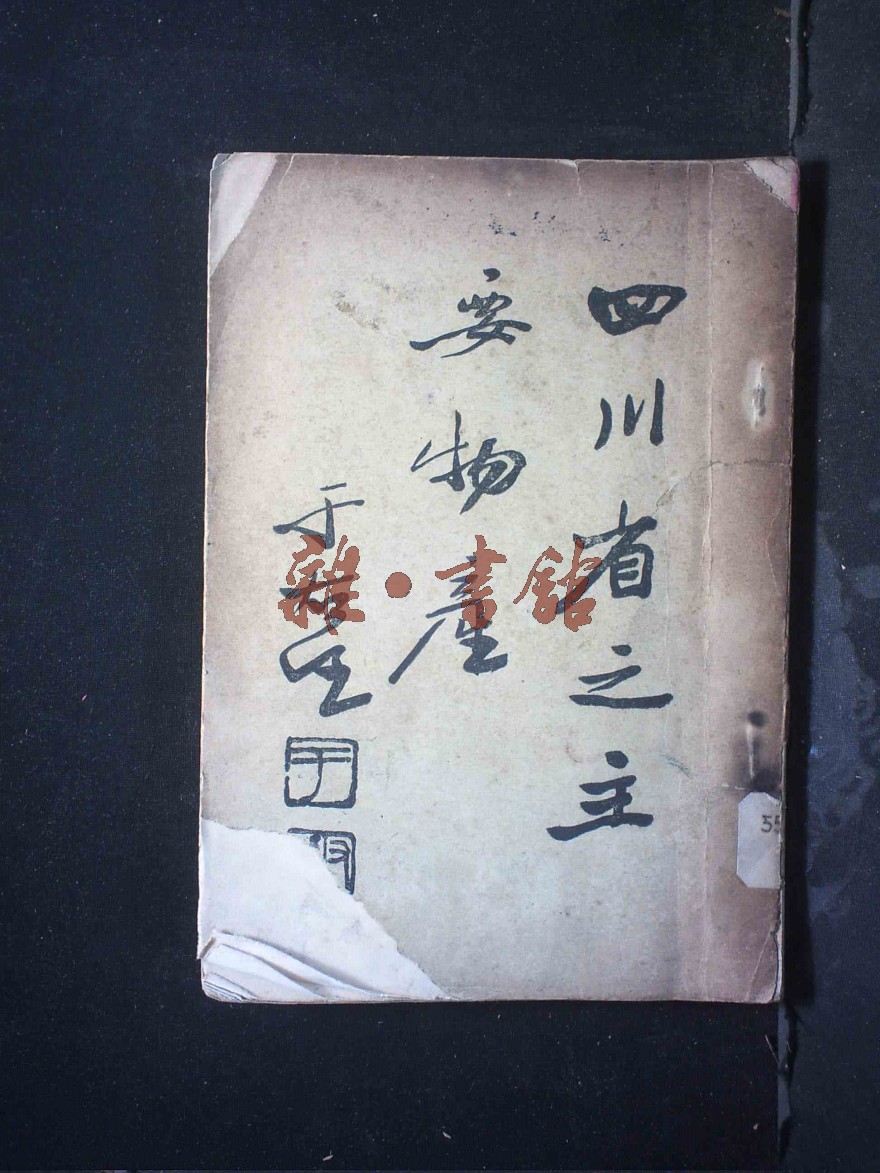 四川省之主
要物產
于右任
雜·書館
55